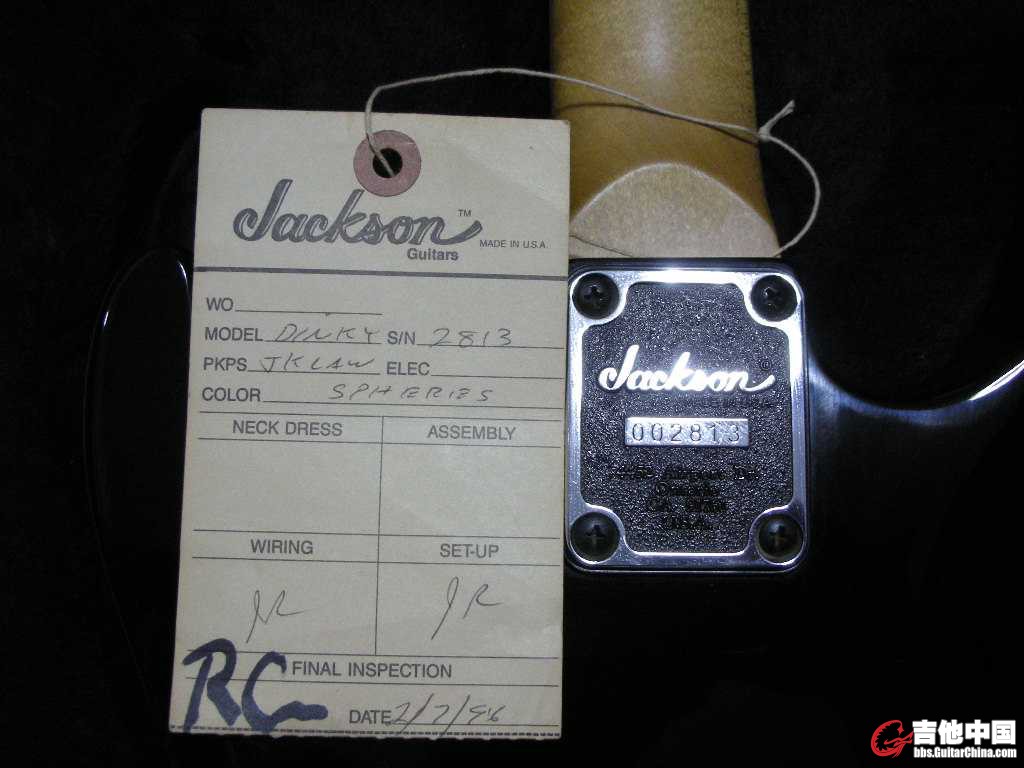 Jackson™
Guitars
MADE IN U.S.A.
WO
MODEL DINKY S/N 2813
PKPS JKLAW ELEC
COLOR SPHERIES
NECK DRESS ASSEMBLY
WIRING SET-UP
JR JR
RC FINAL INSPECTION
DATE 2/7/96
Jackson®
002813
U.S.A.
吉他中国
bbs.GuitarChina.com